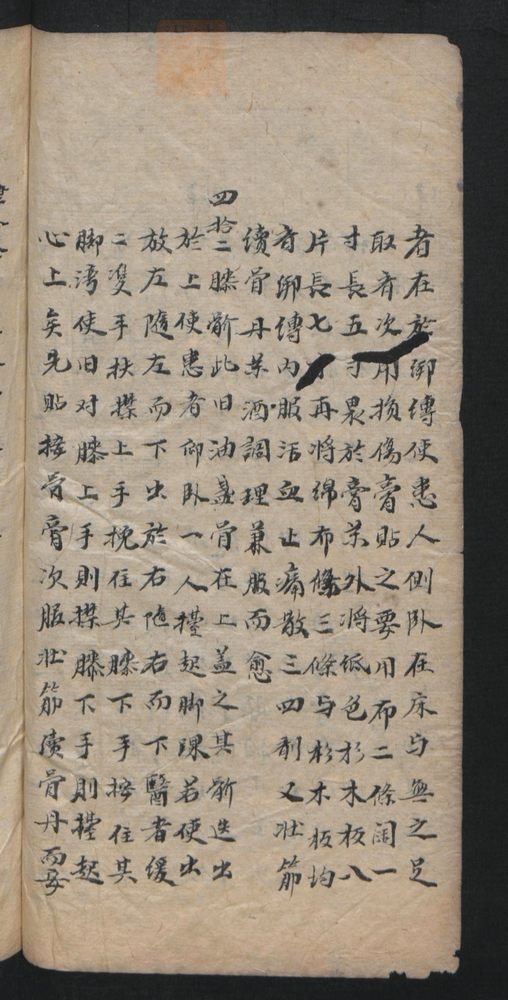 者在於绑縛使患人侧卧在床与無之足
取者次用損傷膏貼之要用布二條闊一
寸長五寸裹於膏茱外将纸色杉木板八
片長七寸再将绵布條三條与杉木板均
有绑縛内服活血止痛散三四剂又壮筋
續骨丹茱酒調理兼服而愈
四拾二膝骱此旧油盏骨在上盖之其骱迭出
於上使患者仰卧一人擡起脚踝若使出
放左随左而下出於右随右而下醫者缓
二雙手扶揲上手挽住其膝下手按住其
脚湾使旧对膝上手則揲膝下手則擡起
心上矣先貼接骨膏次服壮筋續骨丹而安